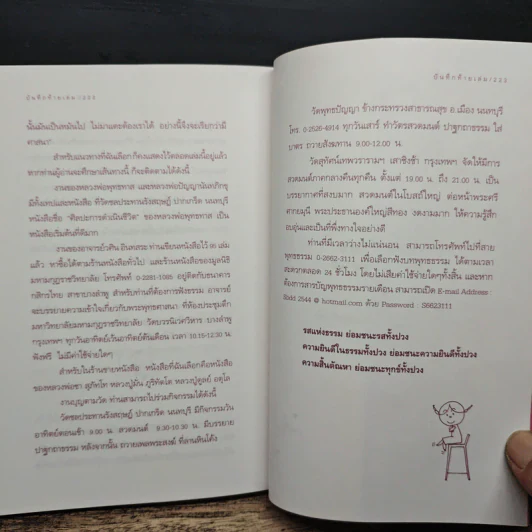 บันทึกท้ายเล่ม/222
นั้นมันเป็นเหมันไป ไม่มาแตะต้องเราได้ อย่างนี้จึงจะเรียกว่ามี
ศาสนา"
สำหรับแนวทางที่ฉันเลือก ก็คงแสดงไว้ตลอดเล่มนี้อยู่แล้ว
หากท่านผู้อ่านจะศึกษาเส้นทางนี้ ก็จะติดตามได้ดังนี้
งานของหลวงพ่อพุทธทาส และหลวงพ่อปัญญานันทภิกขุ
มีทั้งเทปและหนังสือ ที่วัดชลประทานรังสฤษฎ์ ปากเกร็ด นนทบุรี
หนังสือชื่อ "ศิลปะการดำเนินชีวิต" ของหลวงพ่อพุทธทาส เป็น
หนังสือเริ่มต้นที่ดีมาก
งานของอาจารย์วศิน อินทสระ ท่านเขียนหนังสือไว้ เล่ม
แล้ว หาซื้อได้ตามร้านหนังสือทั่วไป และร้านหนังสือของมูลนิธิ
มหามกุฏราชวิทยาลัย โทรศัพท์ 0-2281-1085 อยู่ติดกับธนาคาร
กสิกรไทย สาขาบางลำพู สำหรับท่านที่ต้องการฟังธรรม อาจารย์
จะบรรยายความเข้าใจเกี่ยวกับพระพุทธศาสนา ที่ห้องประชุมตึก
มหาวิทยาลัยมหามกุฏราชวิทยาลัย วัดบวรนิเวศวิหาร บางลำพู
กรุงเทพฯ ทุกวันอาทิตย์เว้นอาทิตย์ต้นเดือน เวลา 10.15-12.30 น.
ฟังฟรี ไม่มีค่าใช้จ่ายใดๆ
สำหรับในร้านขายหนังสือ หนังสือที่ฉันเลือกคือหนังสือ
ของหลวงพ่อชา สุภัทโท หลวงปู่มั่น ภูริทัตโต หลวงปู่ดูลย์ อตุโล
งานบุญตามวัด ท่านสามารถไปร่วมกิจกรรมได้ดังนี้
วัดชลประทานรังสฤษฎ์ ปากเกร็ด นนทบุรี มีกิจกรรมวัน
อาทิตย์ตอนเช้า 8.00 น. สวดมนต์ 9.30-10.30 น. มีบรรยาย
ปาฐกถาธรรม หลังจากนั้น ถวายเพลพระสงฆ์ ที่ลานหินโค้ง
บันทึกท้ายเล่ม/223
วัดพุทธปัญญา ข้างกระทรวงสาธารณสุข อ.เมือง นนทบุรี
โทร. 0-2526-4914 ทุกวันเสาร์ ทำวัตรสวดมนต์ ปาฐกถาธรรม ใส่
บาตร ถวายสังฆทาน 9.00-12.00 น.
วัดสุทัศน์เทพวรารามฯ เสาชิงช้า กรุงเทพฯ จัดให้มีการ
สวดมนต์ภาคกลางคืนทุกคืน ตั้งแต่ 19.00 น. ถึง 21.00 น. เป็น
บรรยากาศที่สงบมาก สวดมนต์ในโบสถ์ใหญ่ ต่อหน้าพระศรี
ศากยมุนี พระประธานองค์ใหญ่สีทอง งดงามมาก ให้ความรู้สึก
อบอุ่นและเป็นที่พึ่งทางใจอย่างดี
ท่านที่มีเวลาว่างไม่แน่นอน สามารถโทรศัพท์ไปที่สาย
พุทธธรรม 0-2662-3111 เพื่อเลือกฟังบทพุทธธรรม ได้ตามเวลา
สะดวกตลอด 24 ชั่วโมง โดยไม่เสียค่าใช้จ่ายใดๆทั้งสิ้น และหาก
ต้องการสารบัญพุทธธรรมรายเดือน สามารถเปิด E-mail Address :
tbdd 2544 @ hotmail.com ด้วย Password : S6623111
รสแห่งธรรม ย่อมชนะรสทั้งปวง
ความยินดีในธรรมทั้งปวง ย่อมชนะความยินดีทั้งปวง
ความสิ้นตัณหา ย่อมชนะทุกข์ทั้งปวง